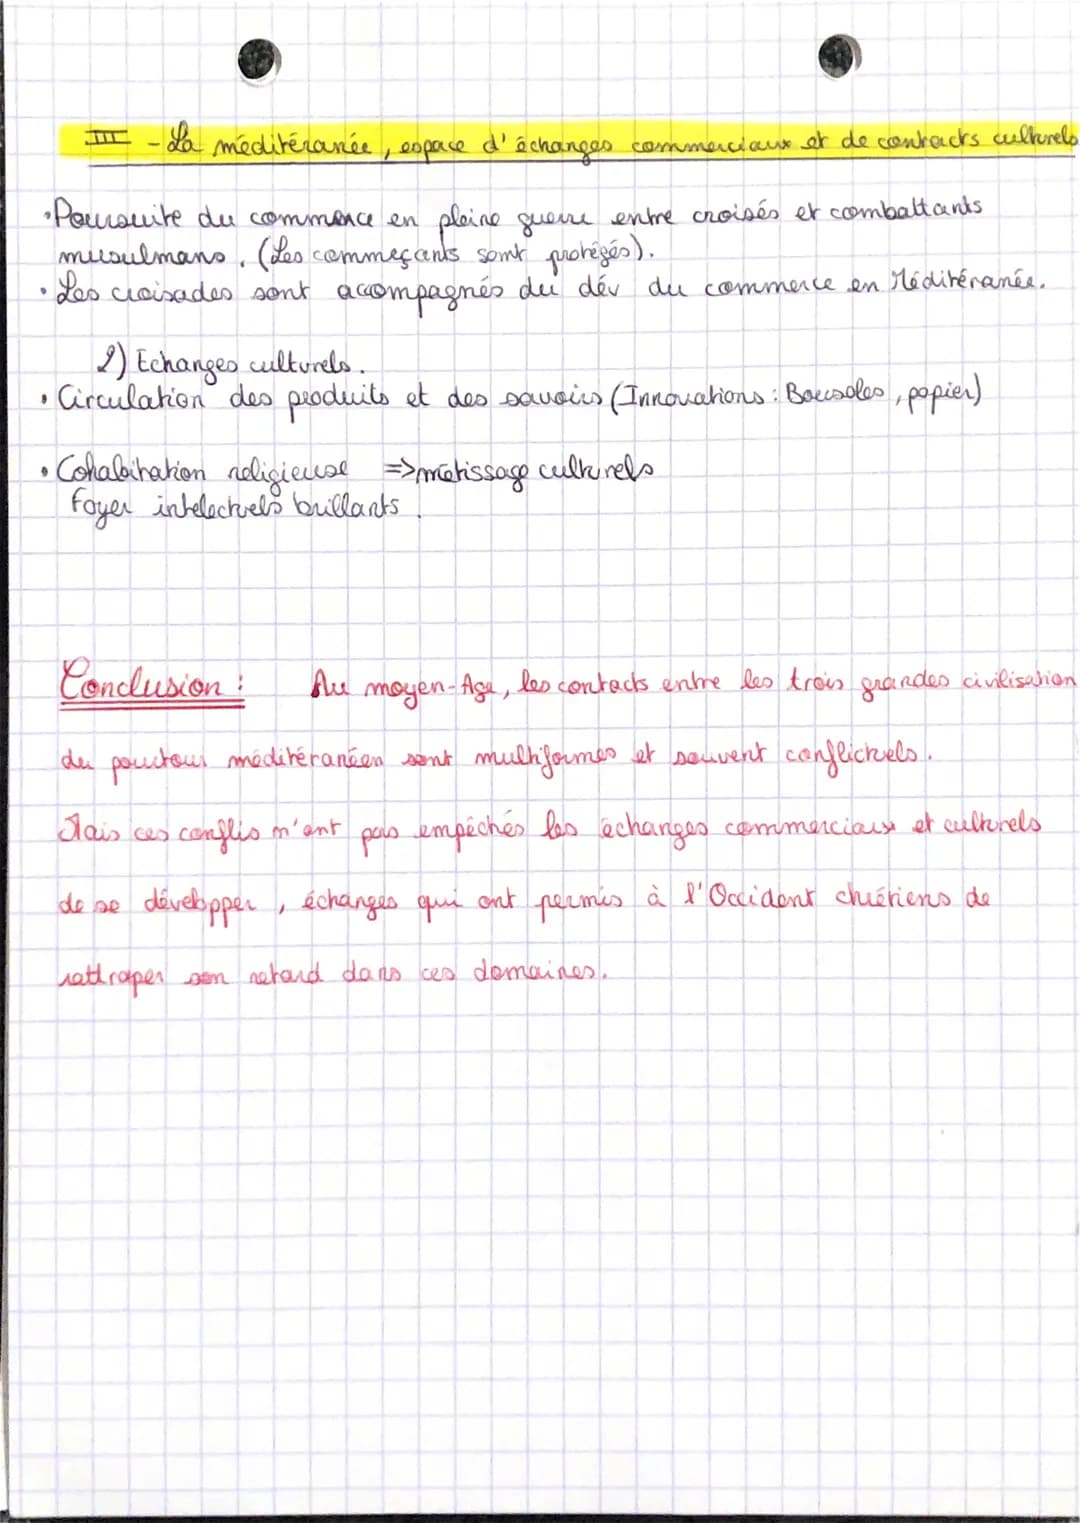 III - La méditéranée, espace d'échanges commerciaux et de contacts culturels
•Poursuite du commerce en pleine guerre entre croisés et combattants
musulmans. (Les commeçants sont protégés).
• Les croisades sont accompagnés du dév du commerce en Méditéranée.
2) Echanges culturels.
• Circulation des produits et des savoirs (Innovations : Boussoles, papier)
• Cohabitation religieuse => métissage culturels
foyer intelectuels brillants.
Conclusion : Au moyen-Age, les contacts entre les trois grandes civilisation
du pourtour méditéranéen sont multiformes et souvent conflictuels.
Mais ces conflis n'ont pas empéchés les échanges commerciaux et culturels
de se développer, échanges qui ont permis à l'Occident chrétiens de
rattraper son retard dans ces domaines.